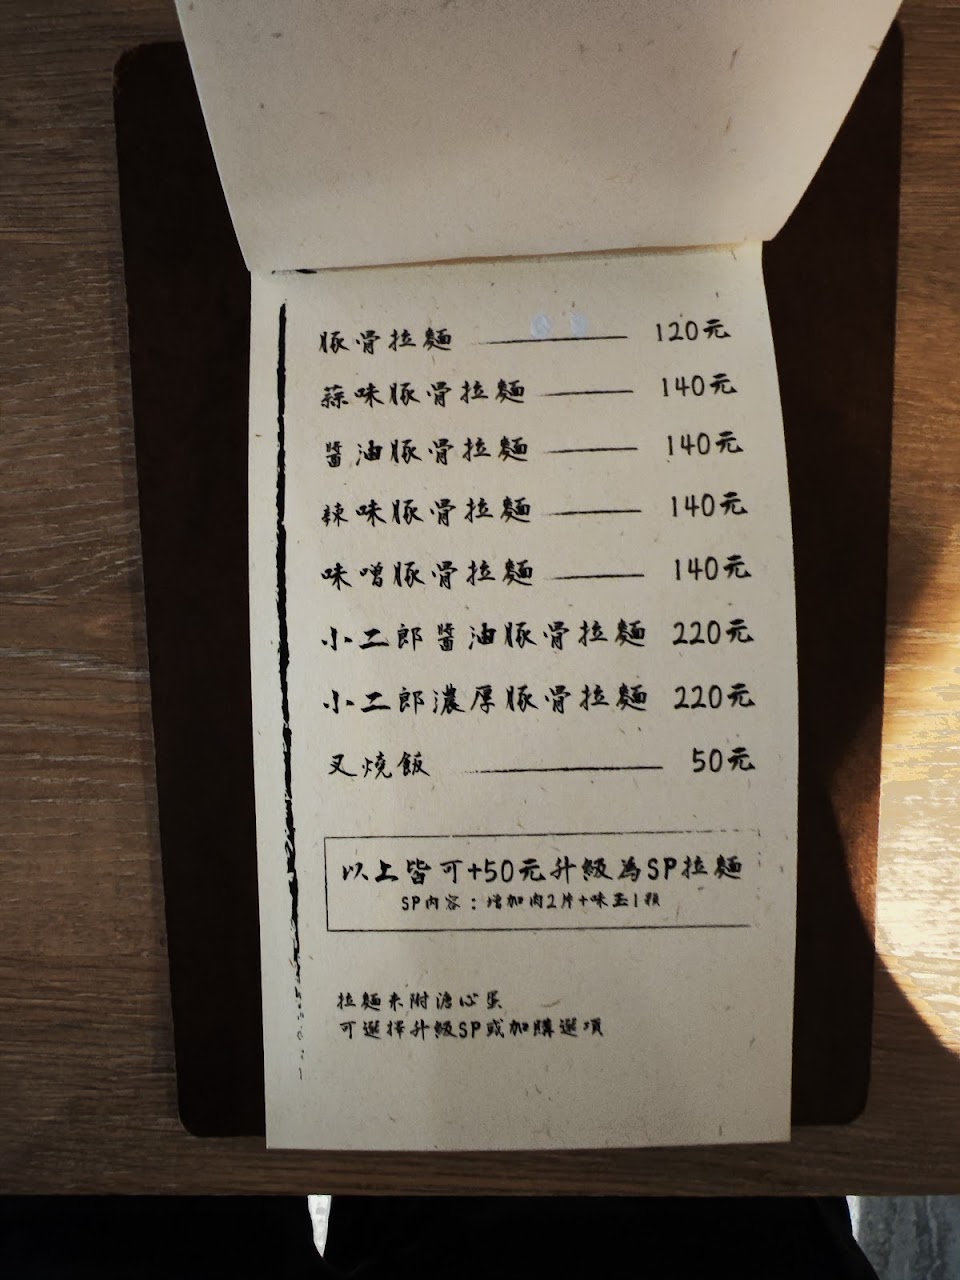 豚骨拉麵 120元
蒜味豚骨拉麵 140元
醬油豚骨拉麵 140元
辣味豚骨拉麵 140元
味噌豚骨拉麵 140元
小二郎醬油豚骨拉麵 220元
小二郎濃厚豚骨拉麵 220元
叉燒飯 50元
以上皆可+50元升級為SP拉麵
SP內容：增加肉2片+味玉1顆
拉麵未附溏心蛋
可選擇升級SP或加購選項